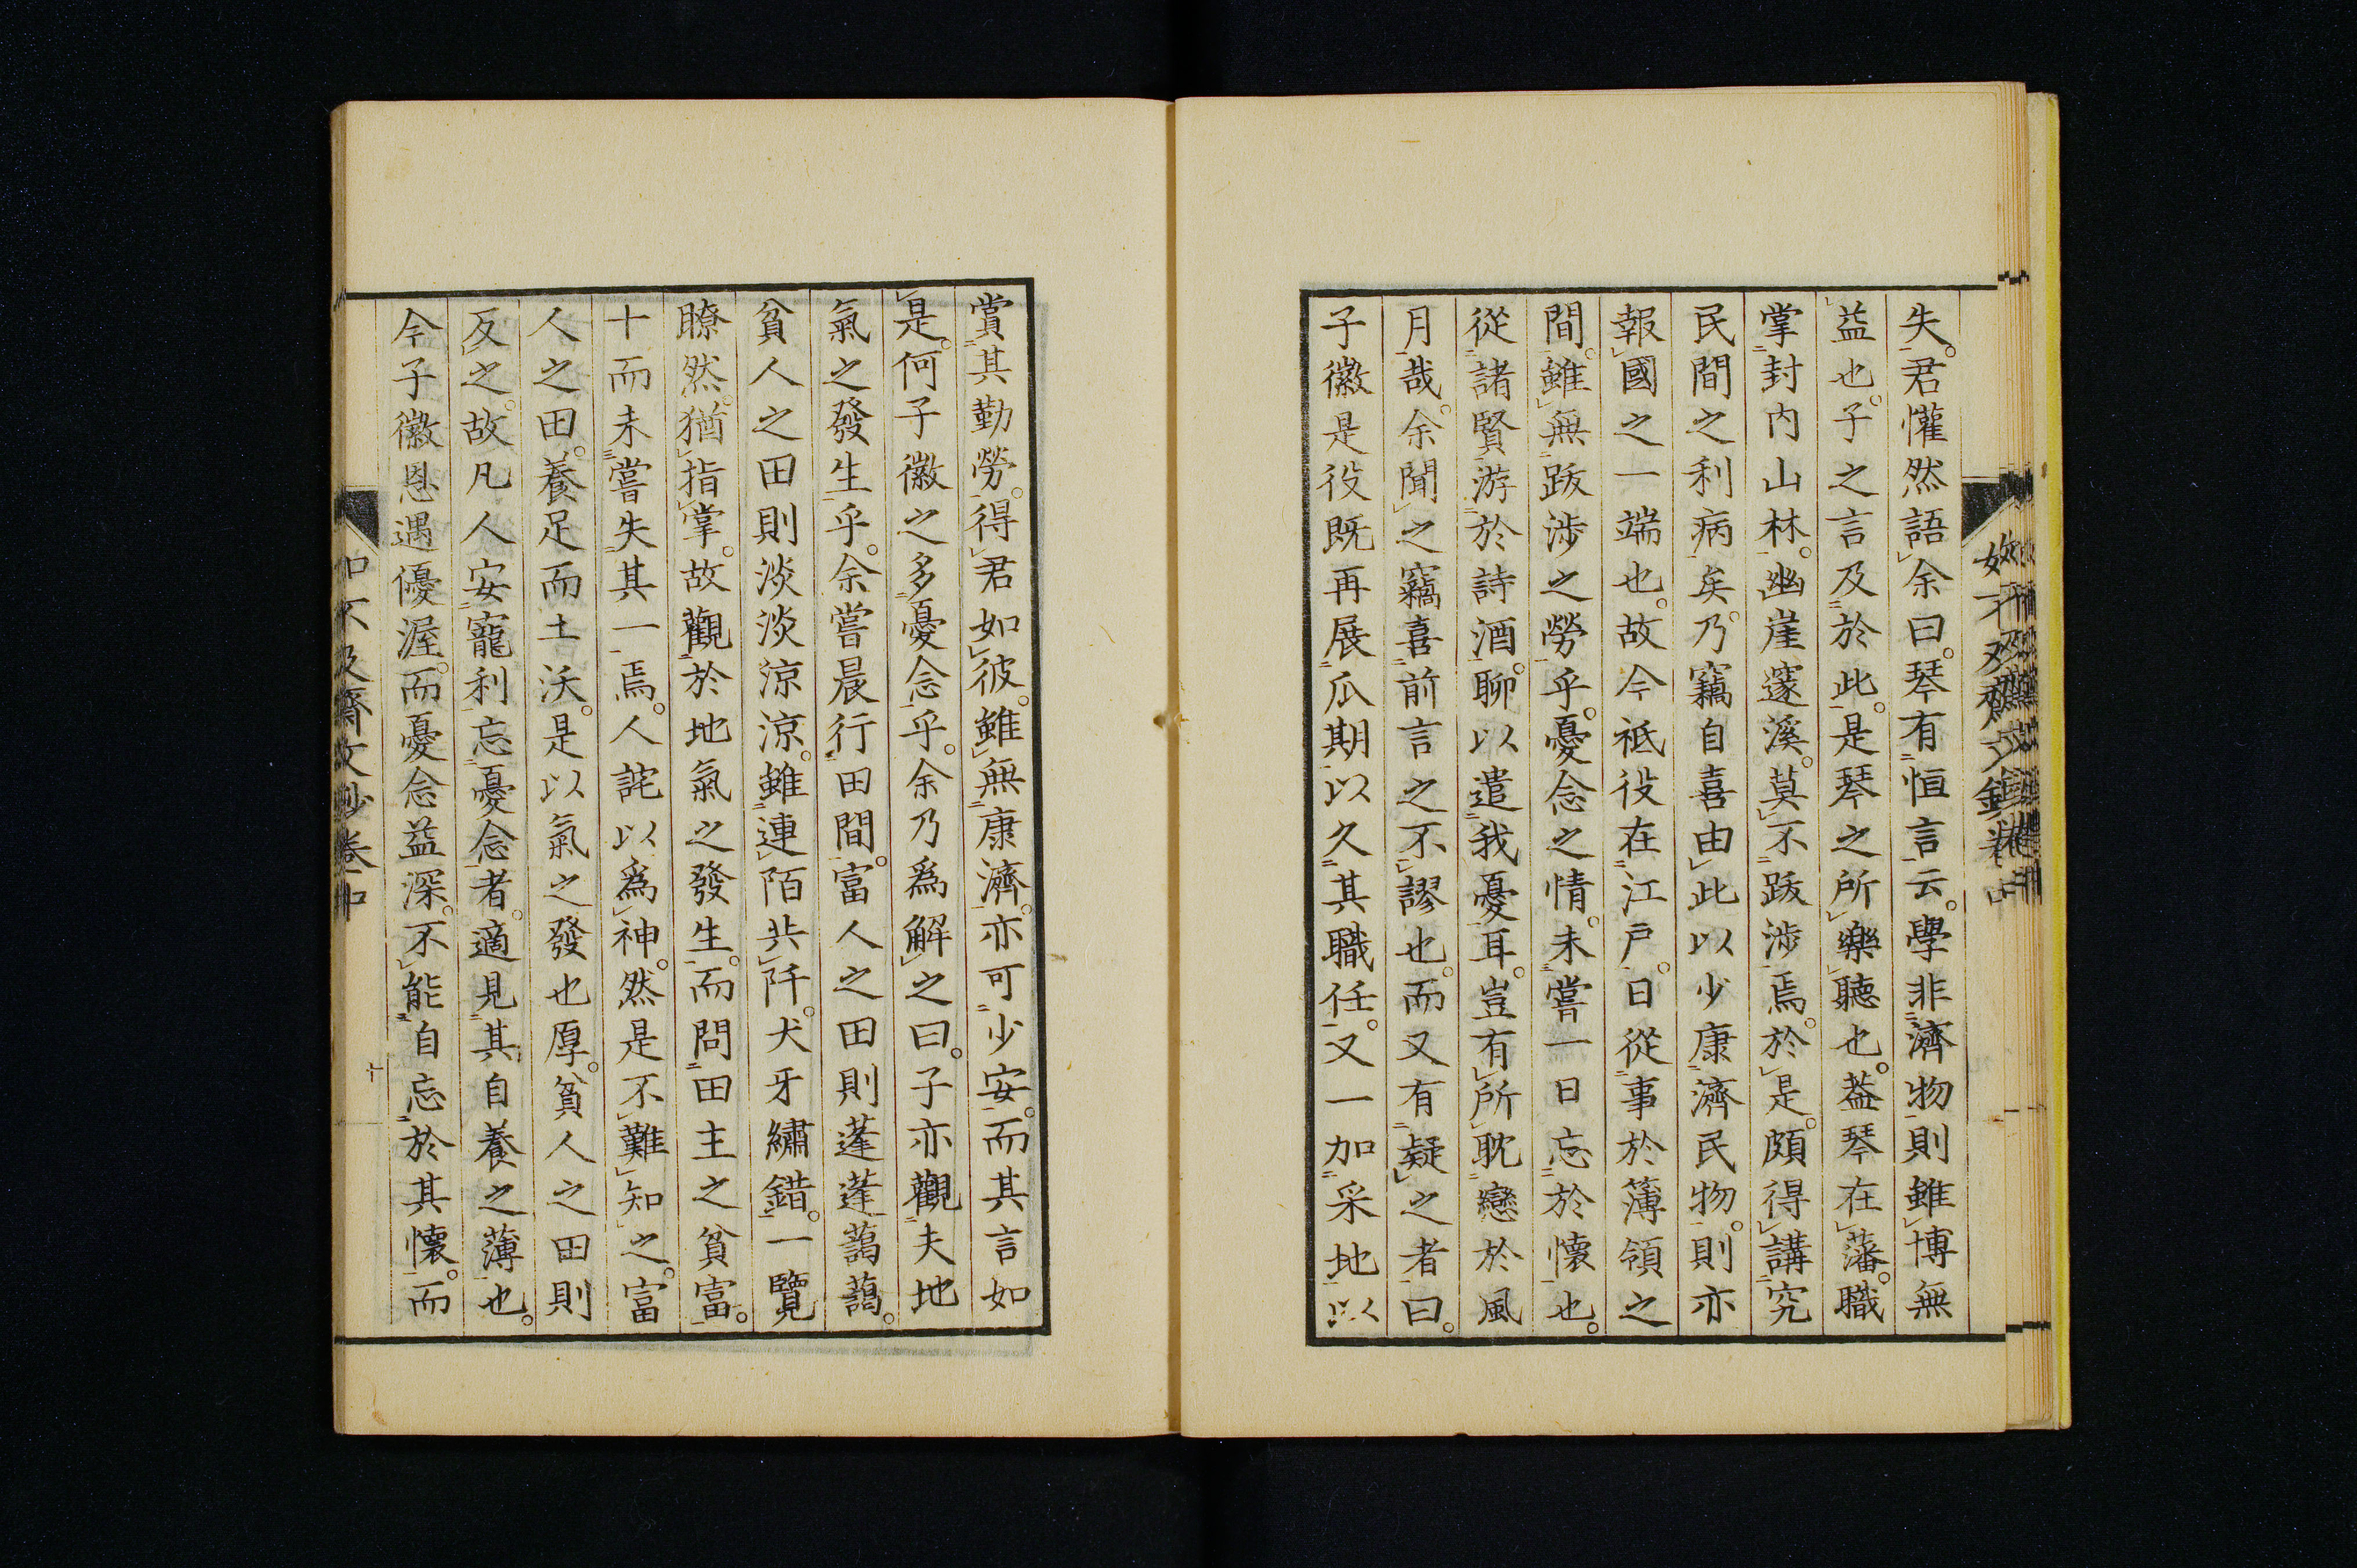 失。君懽然語余曰。琴有恒言云。學非濟物則雖博無
益也。子之言及於此。是琴之所樂聽也。葢琴在藩。職
掌封內山林。幽崖邃溪。莫不跋涉焉。於是。頗得講究
民間之利病矣。乃竊自喜由此以少康濟民物。則亦
報國之一端也。故今祗役在江戸。日從事於簿領之
間。雖無跋涉之勞乎。憂念之情。未嘗一日忘於懷也。
從諸賢游於詩酒。聊以遣我憂耳。豈有所耽戀於風
月哉。余聞之竊喜前言之不謬也。而又有疑之者曰。
子徽是役既再展瓜期以久其職任。又一加采地以
賞其勤勞。得君如彼。雖無康濟。亦可少安。而其言如
是。何子徽之多憂念乎。余乃爲解之曰。子亦觀夫地
氣之發生乎。余嘗晨行田間。富人之田則蓬蓬藹藹。
貧人之田則淡淡涼涼。雖連陌共阡。犬牙繡錯。一覽
瞭然。猶指掌。故觀於地氣之發生。而問田主之貧富。
十而未嘗失其一焉。人詫以爲神。然是不難知之。富
人之田。養足而土沃。是以氣之發也厚。貧人之田則
反之。故凡人安寵利忘憂念者。適見其自養之薄也。
今子徽恩遇優渥。而憂念益深。不能自忘於其懷。而
如不及齋文鈔卷中
十